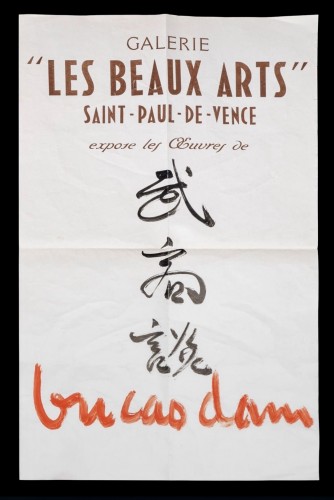 GALERIE
"LES BEAUX ARTS"
SAINT-PAUL-DE-VENCE
expose les Œuvres de
武
高
談
vu cao dam